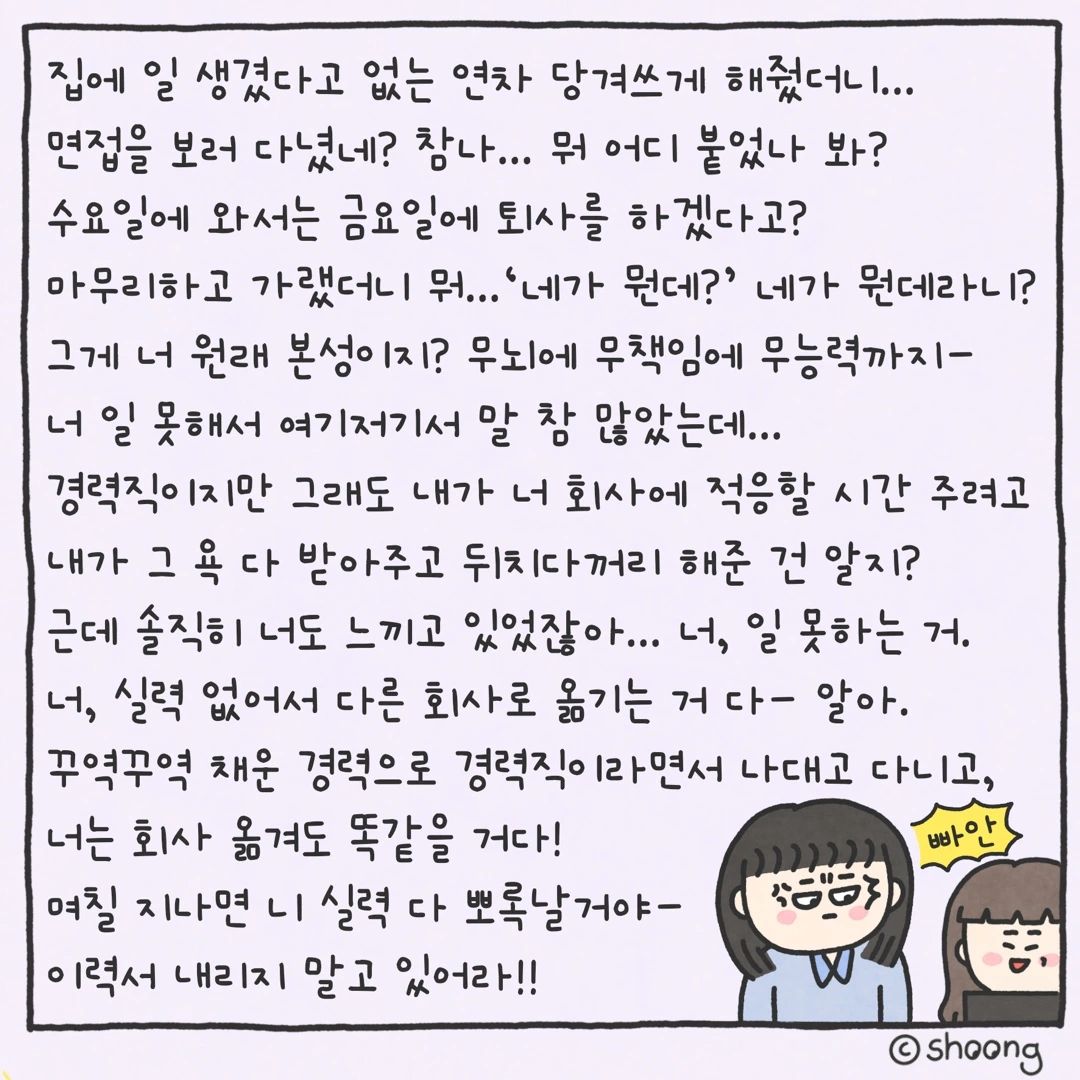 집에 일 생겼다고 없는 연차 당겨쓰게 해줬더니...
면접을 보러 다녔네? 참나... 뭐 어디 붙었나 봐?
수요일에 와서는 금요일에 퇴사를 하겠다고?
마무리하고 가랬더니 뭐...‘네가 뭔데?’ 네가 뭔데라니?
그게 너 원래 본성이지? 무뇌에 무책임에 무능력까지-
너 일 못해서 여기저기서 말 참 많았는데...
경력직이지만 그래도 내가 너 회사에 적응할 시간 주려고
내가 그 욕 다 받아주고 뒤치다꺼리 해준 건 알지?
근데 솔직히 너도 느끼고 있었잖아... 너, 일 못하는 거.
너, 실력 없어서 다른 회사로 옮기는 거 다- 알아.
꾸역꾸역 채운 경력으로 경력직이라면서 나대고 다니고,
너는 회사 옮겨도 똑같을 거다!
며칠 지나면 니 실력 다 뽀록날거야-
이력서 내리지 말고 있어라!!
빠안
©shoong